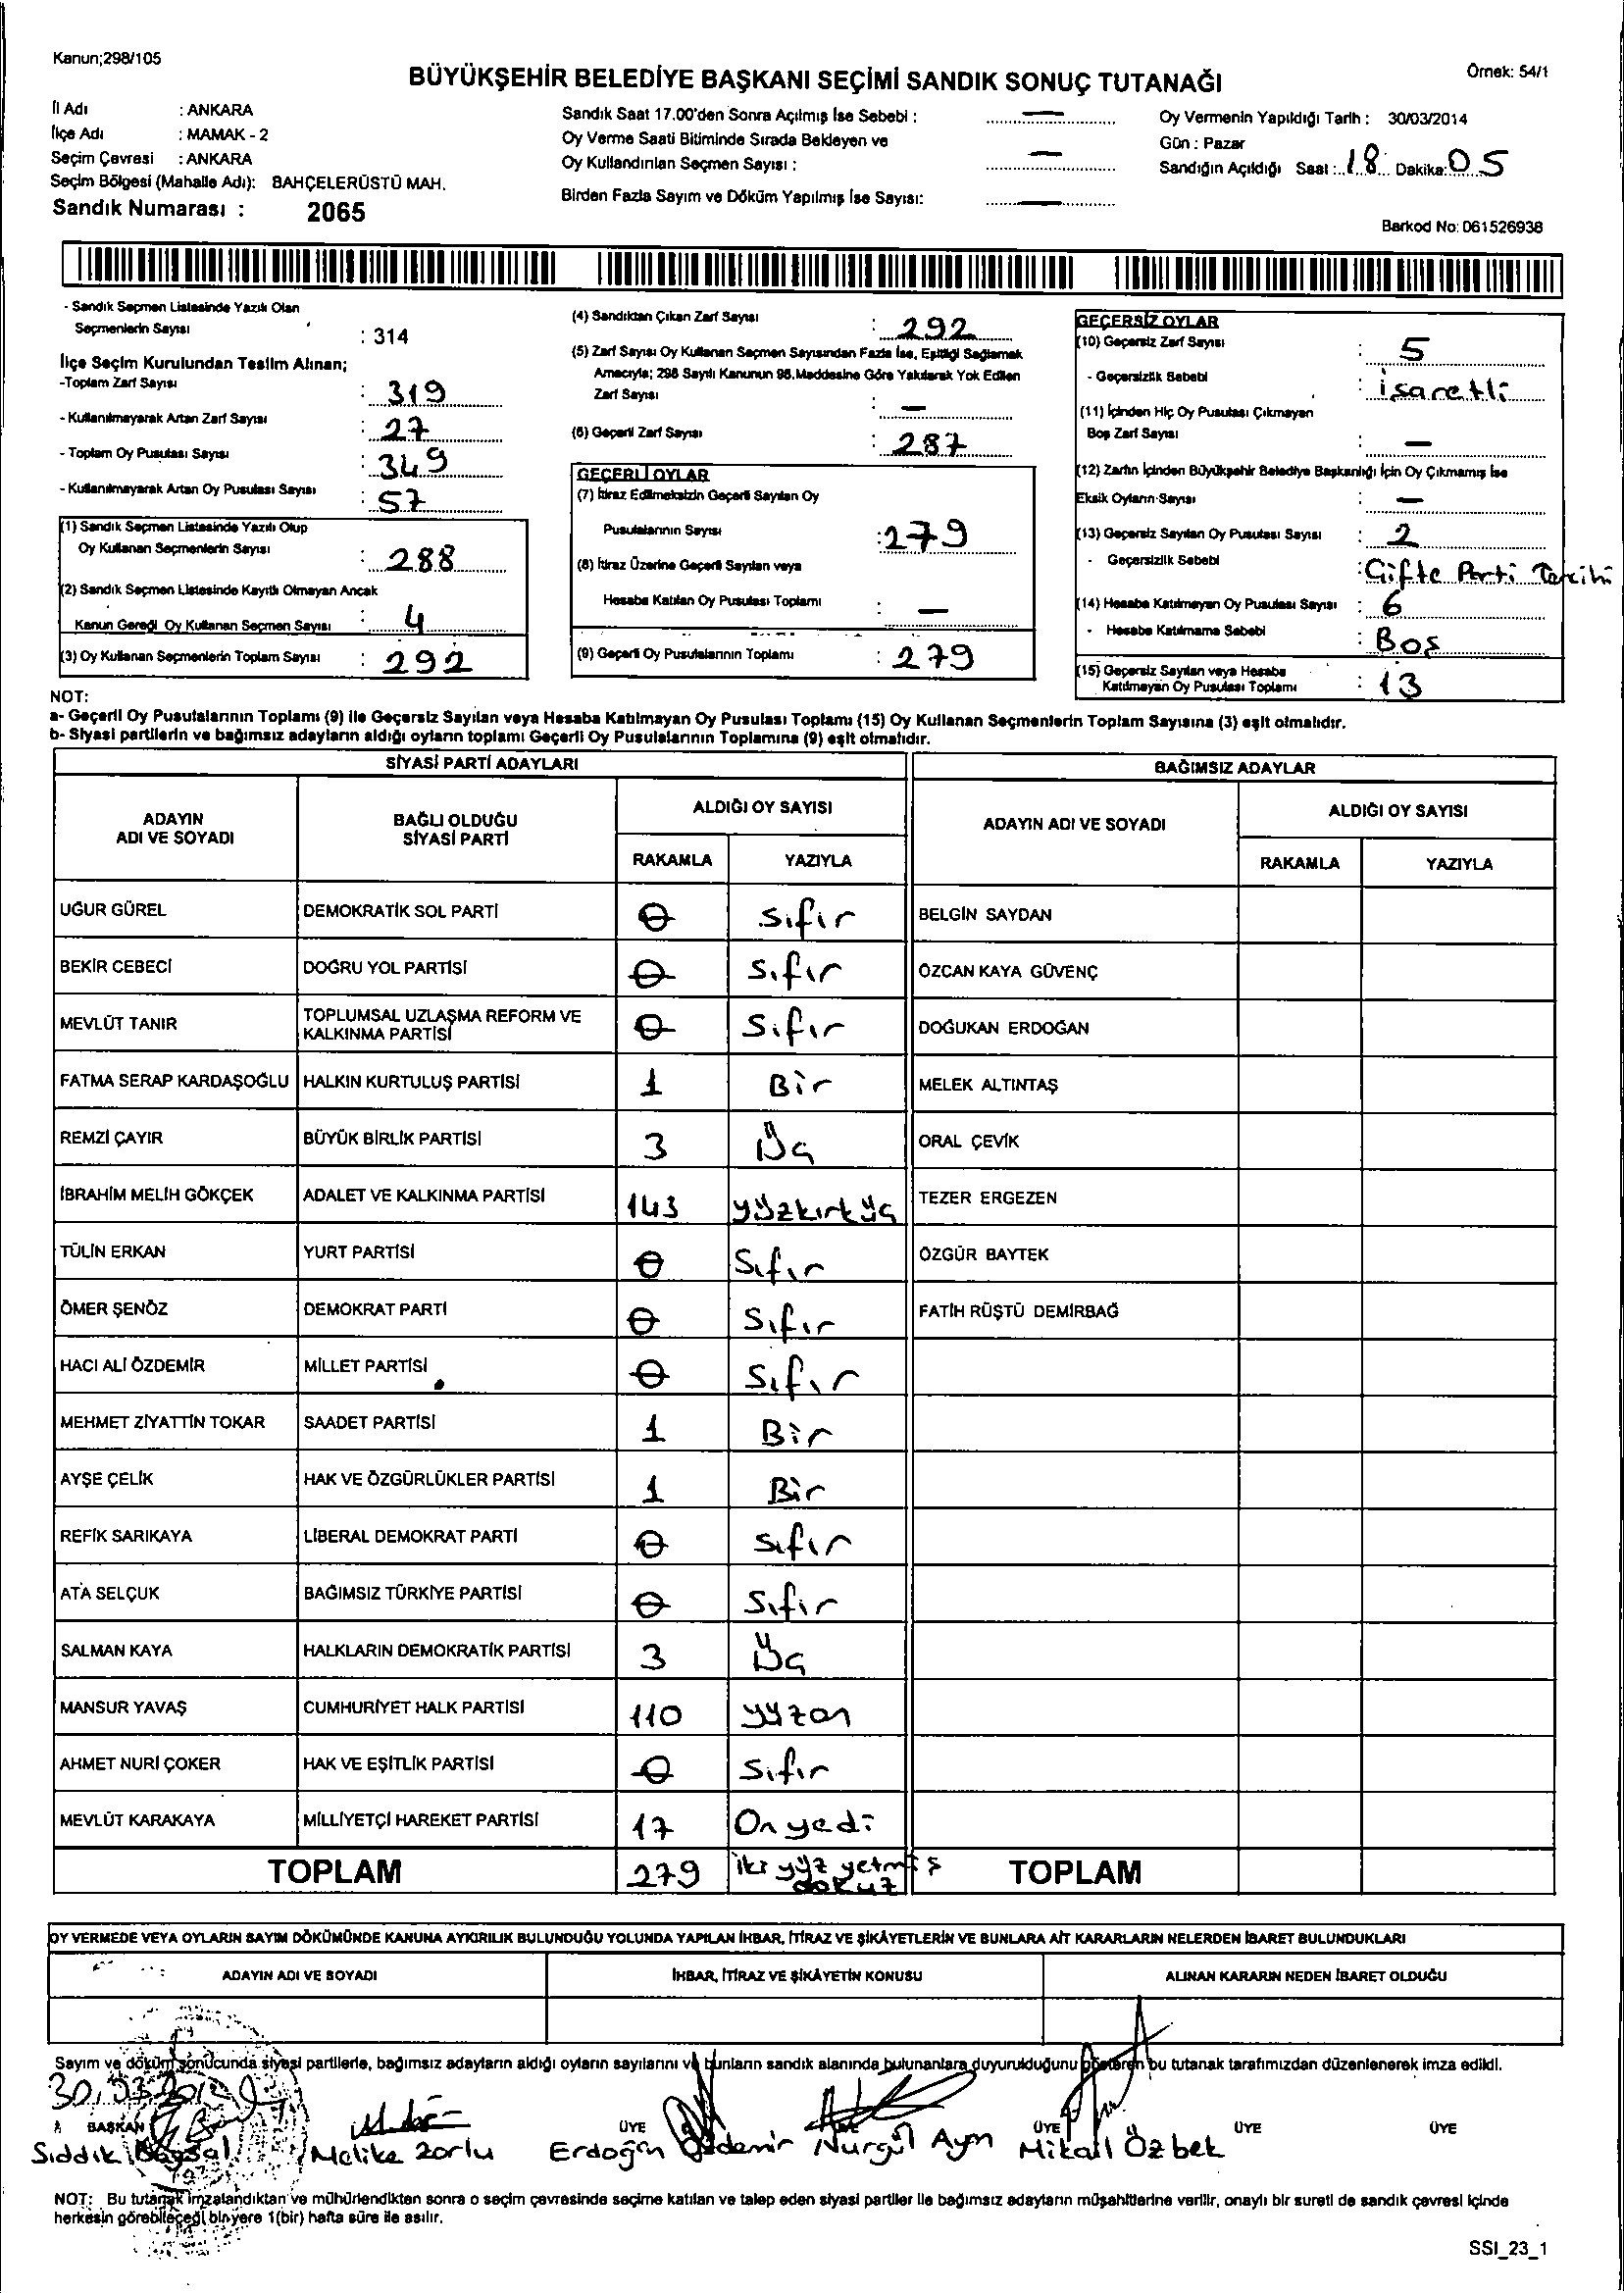 Kanun;298/105
Örnek: 54/1
BÜYÜKŞEHİR BELEDİYE BAŞKANI SEÇİMİ SANDIK SONUÇ TUTANAĞI
İl Adı : ANKARA
İlçe Adı : MAMAK - 2
Seçim Çevresi : ANKARA
Seçim Bölgesi (Mahalle Adı): BAHÇELERÜSTÜ MAH.
Sandık Numarası : 2065
Sandık Saat 17.00'den Sonra Açılmış İse Sebebi : —
Oy Verme Saati Bitiminde Sırada Bekleyen ve
Oy Kullandırılan Seçmen Sayısı : —
Birden Fazla Sayım ve Döküm Yapılmış İse Sayısı: —
Oy Vermenin Yapıldığı Tarih : 30/03/2014
Gün : Pazar
Sandığın Açıldığı Saat : 18 Dakika: 05
Barkod No: 061526938
- Sandık Seçmen Listesinde Yazılı Olan
Seçmenlerin Sayısı : 314
İlçe Seçim Kurulundan Teslim Alınan;
-Toplam Zarf Sayısı : 319
- Kullanılmayarak Artan Zarf Sayısı : 27
- Toplam Oy Pusulası Sayısı : 349
- Kullanılmayarak Artan Oy Pusulası Sayısı : 57
(1) Sandık Seçmen Listesinde Yazılı Olup
Oy Kullanan Seçmenlerin Sayısı : 288
(2) Sandık Seçmen Listesinde Kayıtlı Olmayan Ancak
Kanun Gereği Oy Kullanan Seçmen Sayısı : 4
(3) Oy Kullanan Seçmenlerin Toplam Sayısı : 292
(4) Sandıktan Çıkan Zarf Sayısı : 292
(5) Zarf Sayısı Oy Kullanan Seçmen Sayısından Fazla İse, Eşitliği Sağlamak
Amacıyla; 298 Sayılı Kanunun 98.Maddesine Göre Yakılarak Yok Edilen
Zarf Sayısı : —
(6) Geçerli Zarf Sayısı : 287
GEÇERLİ OYLAR
(7) İtiraz Edilmeksizin Geçerli Sayılan Oy
Pusulalarının Sayısı : 279
(8) İtiraz Üzerine Geçerli Sayılan veya
Hesaba Katılan Oy Pusulası Toplamı : —
(9) Geçerli Oy Pusulalarının Toplamı : 279
GEÇERSİZ OYLAR
(10) Geçersiz Zarf Sayısı : 5
- Geçersizlik Sebebi : işaretli
(11) İçinden Hiç Oy Pusulası Çıkmayan
Boş Zarf Sayısı : —
(12) Zarfın İçinden Büyükşehir Belediye Başkanlığı İçin Oy Çıkmamış İse
Eksik Oyların Sayısı : —
(13) Geçersiz Sayılan Oy Pusulası Sayısı : 2
- Geçersizlik Sebebi : Çifte Parti Tercihi
(14) Hesaba Katılmayan Oy Pusulası Sayısı : 6
- Hesaba Katılmama Sebebi : Boş
(15) Geçersiz Sayılan veya Hesaba
Katılmayan Oy Pusulası Toplamı : 13
NOT:
a- Geçerli Oy Pusulalarının Toplamı (9) ile Geçersiz Sayılan veya Hesaba Katılmayan Oy Pusulası Toplamı (15) Oy Kullanan Seçmenlerin Toplam Sayısına (3) eşit olmalıdır.
b- Siyasi partilerin ve bağımsız adayların aldığı oyların toplamı Geçerli Oy Pusulalarının Toplamına (9) eşit olmalıdır.
SİYASİ PARTİ ADAYLARI BAĞIMSIZ ADAYLAR
ADAYIN ADI VE SOYADI BAĞLI OLDUĞU SİYASİ PARTİ ALDIĞI OY SAYISI ADAYIN ADI VE SOYADI ALDIĞI OY SAYISI
RAKAMLA YAZIYLA RAKAMLA YAZIYLA
UĞUR GÜREL DEMOKRATİK SOL PARTİ 0 Sıfır BELGİN SAYDAN
BEKİR CEBECİ DOĞRU YOL PARTİSİ 0 Sıfır ÖZCAN KAYA GÜVENÇ
MEVLÜT TANIR TOPLUMSAL UZLAŞMA REFORM VE KALKINMA PARTİSİ 0 Sıfır DOĞUKAN ERDOĞAN
FATMA SERAP KARDAŞOĞLU HALKIN KURTULUŞ PARTİSİ 1 Bir MELEK ALTINTAŞ
REMZİ ÇAYIR BÜYÜK BİRLİK PARTİSİ 3 Üç ORAL ÇEVİK
İBRAHİM MELİH GÖKÇEK ADALET VE KALKINMA PARTİSİ 143 yüzkırküç TEZER ERGEZEN
TÜLİN ERKAN YURT PARTİSİ 0 Sıfır ÖZGÜR BAYTEK
ÖMER ŞENÖZ DEMOKRAT PARTİ 0 Sıfır FATİH RÜŞTÜ DEMİRBAĞ
HACI ALİ ÖZDEMİR MİLLET PARTİSİ 0 Sıfır
MEHMET ZİYATTİN TOKAR SAADET PARTİSİ 1 Bir
AYŞE ÇELİK HAK VE ÖZGÜRLÜKLER PARTİSİ 1 Bir
REFİK SARIKAYA LİBERAL DEMOKRAT PARTİ 0 Sıfır
ATA SELÇUK BAĞIMSIZ TÜRKİYE PARTİSİ 0 Sıfır
SALMAN KAYA HALKLARIN DEMOKRATİK PARTİSİ 3 Üç
MANSUR YAVAŞ CUMHURİYET HALK PARTİSİ 110 yüzon
AHMET NURİ ÇOKER HAK VE EŞİTLİK PARTİSİ 0 Sıfır
MEVLÜT KARAKAYA MİLLİYETÇİ HAREKET PARTİSİ 17 Onyedi
TOPLAM 279 iki yüz yetmiş dokuz TOPLAM
OY VERMEDE VEYA OYLARIN SAYIM DÖKÜMÜNDE KANUNA AYKIRILIK BULUNDUĞU YOLUNDA YAPILAN İHBAR, İTİRAZ VE ŞİKÂYETLERİN VE BUNLARA AİT KARARLARIN NELERDEN İBARET BULUNDUKLARI
ADAYIN ADI VE SOYADI İHBAR, İTİRAZ VE ŞİKÂYETİN KONUSU ALINAN KARARIN NEDEN İBARET OLDUĞU
Sayım ve döküm sonucunda siyasi partilerle, bağımsız adayların aldığı oyların sayılarını ve bunların sandık alanında bulunanlara duyurulduğunu gösteren bu tutanak tarafımızdan düzenlenerek imza edildi.
30.03.2014
BAŞKAN ÜYE ÜYE ÜYE ÜYE
Sıddık Baysal Melike Zorlu Erdoğan Özdemir Nurgül Ayn Mikail Özbek
NOT: Bu tutanak imzalandıktan ve mühürlendikten sonra o seçim çevresinde seçime katılan ve talep eden siyasi partiler ile bağımsız adayların müşahitlerine verilir, onaylı bir sureti de sandık çevresi içinde
herkesin görebileceği bir yere 1(bir) hafta süre ile asılır.
SSI_23_1